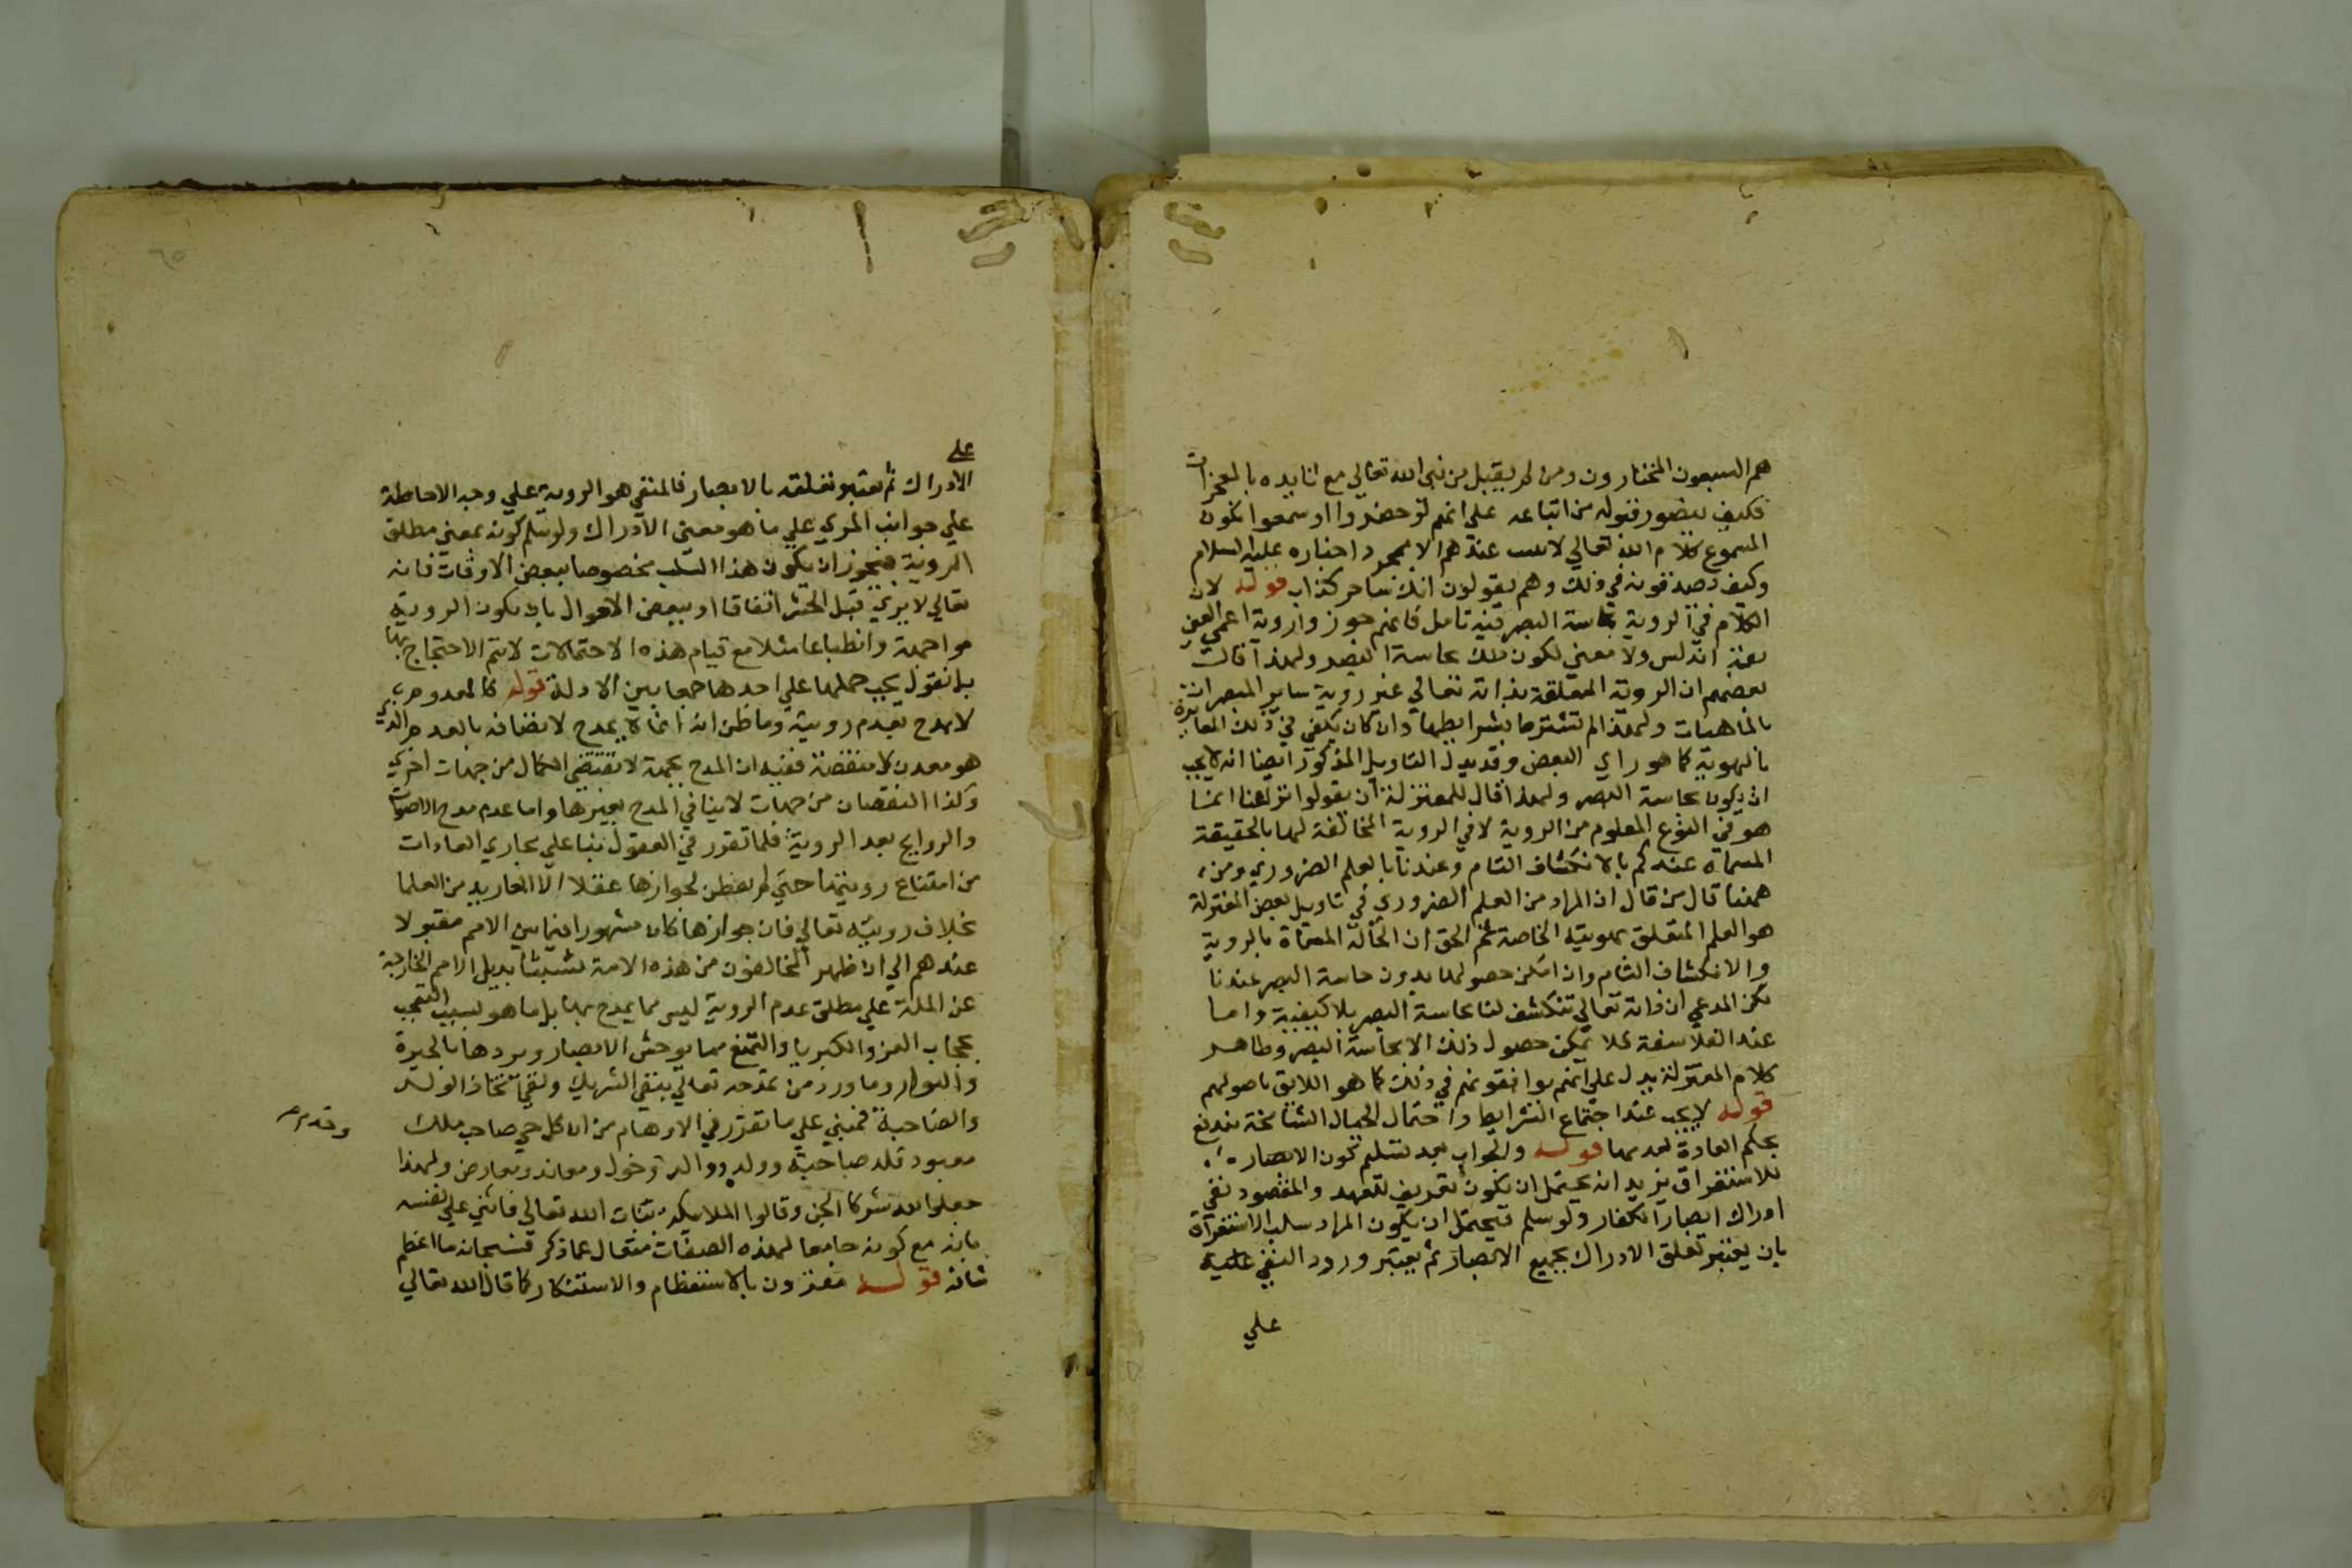 هم السبعون المختارون ومن لم يقبل من نبي الله تعالي مع تاييده بالمعجزات
فكيف يتصور قبوله من اتباعه علي انهم لو حضروا او سمعوا انكون
المسموع كلام الله تعالي لا عندهم الا بمجرد اخباره عليه السلام
وكيف يصدقونه في ذلك وهم يقولون انك ساحر كذاب قوله لان
الكلام في الروية بحاسة البصر فيه تامل فانهم جوزوا روية اعمي الصين
بقة اندلس ولا معني لكون تلك بحاسة البصر ولهذا قالت
بعضهم ان الروية المتعلقة بذاته تعالي غير روية ساير المبصرات
بالماهيات ولهذا لم تشترط بشرايطها وان كان يكفي في ذلك المغايرة
بالهوية كما هو راي البعض وقد يدل التاويل المذكور ايضا انه لا يجب
ان يكون بحاسة البصر ولهذا قال للمعتزلة ان يقولوا نزاعنا انما
هو في النوع المعلوم من الروية لا في الروية المخالفة لها بالحقيقة
المسماة عندكم بالانكشاف التام وعندنا بالعلم الضروري ومن
ههنا قال من قال ان المراد من العلم الضروري في تاويل بعض المعتزلة
هو العلم المتعلق بهويته الخاصة ثم الحق ان الحالة المسماة بالروية
والانكشاف التام وان امكن حصولها بدون حاسة البصر عندنا
لكن المدعي ان ذاته تعالي تنكشف لنا بحاسة البصر بلا كيفية واما
عند الفلاسفة فلا يمكن حصول ذلك الا بحاسة البصر وظاهر
كلام المعتزلة يدل علي انهم يوافقونهم في ذلك كما هو اللايق باصولهم
قوله لا يجب عند اجتماع الشرايط واحتمال الجبال الشامخة مندفع
بحكم العادة بعدمها قوله والجواب بعد تسليم كون الابصار
للاستغراق نريد انه يحتمل ان يكون تعريف للعهد والمقصود نفي
ادراك ابصار الكفار ولو سلم فيحتمل ان يكون المراد سلب الاستغراق
بان يعتبر تعلق الادراك بجميع الابصار ثم يعتبر ورود النفي عليه
علي
علي
الادراك ثم يعتبر تعلقه بالابصار فالمنفي هو الروية علي وجه الاحاطة
علي جوانب المري علي ما هو معني الادراك ولو سلم كونه بمعني مطلق
الروية فيجوز ان يكون هذا السلب مخصوصا ببعض الاوقات فانه
تعالي لا يري قبل الحشر اتفاقا او ببعض الاحوال بان يكون الروية
مواجهة وانطباعا مثلا مع قيام هذه الاحتمالات لا يتم الاحتجاج بها
بل نقول يجب حملها علي احدها جمعا بين الادلة قوله كالمعدوم
لا يمدح بعدم رويته وما ظن انه انما لا يمدح لاتصافه بالعدم الذي
هو معدن كل منقصة ففيه ان المدح بجهة لا يقتضي الكمال من جهات اخري
وكذا النقصان من جهات لا ينافي المدح بغيرها واما عدم مدح الاصوات
والروايح بعد الروية فلما تقرر في العقول بنبا علي مجاري العادات
من امتناع رويتها حتي لم يفطن لجوازها عقلا الا من العلما
بخلاف رويته تعالي فان جوازها كان مشهورا فيما بين الامم مقبولا
عندهم الي ان ظهر المخالفون من هذه الامة تشبثا بذيل الامم الخارجة
عن الملة علي مطلق عدم الروية ليس مما يمدح بها بل ما هو لسبب التعجب
بحجاب العز والكبريا والتمنع مما يوحش الابصار ويردها بالحيرة
والبوار وما ورد من تمدحه تعالي بنفي الشريك ونفي اتخاذ الولد
والصاحبة فمبني علي ما تقرر في الاوهام من ان كل حي صاحب ملك
معبود فله صاحبة وولد ووالد وخول ومعاند ومعارض ولهذا
جعلوا لله شركا الجن وقالوا الملايكة بنات الله تعالي فاثني علي نفسه
بانه مع كونه جامعا لهذه الصفات متعال عما ذكر فسبحانه ما اعظم
شانه قوله مقترون بالاستعظام والاستنكار كما قال الله تعالي